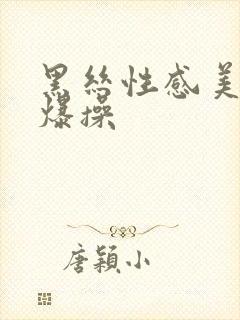 黑丝性感美
爆操
唐颖小